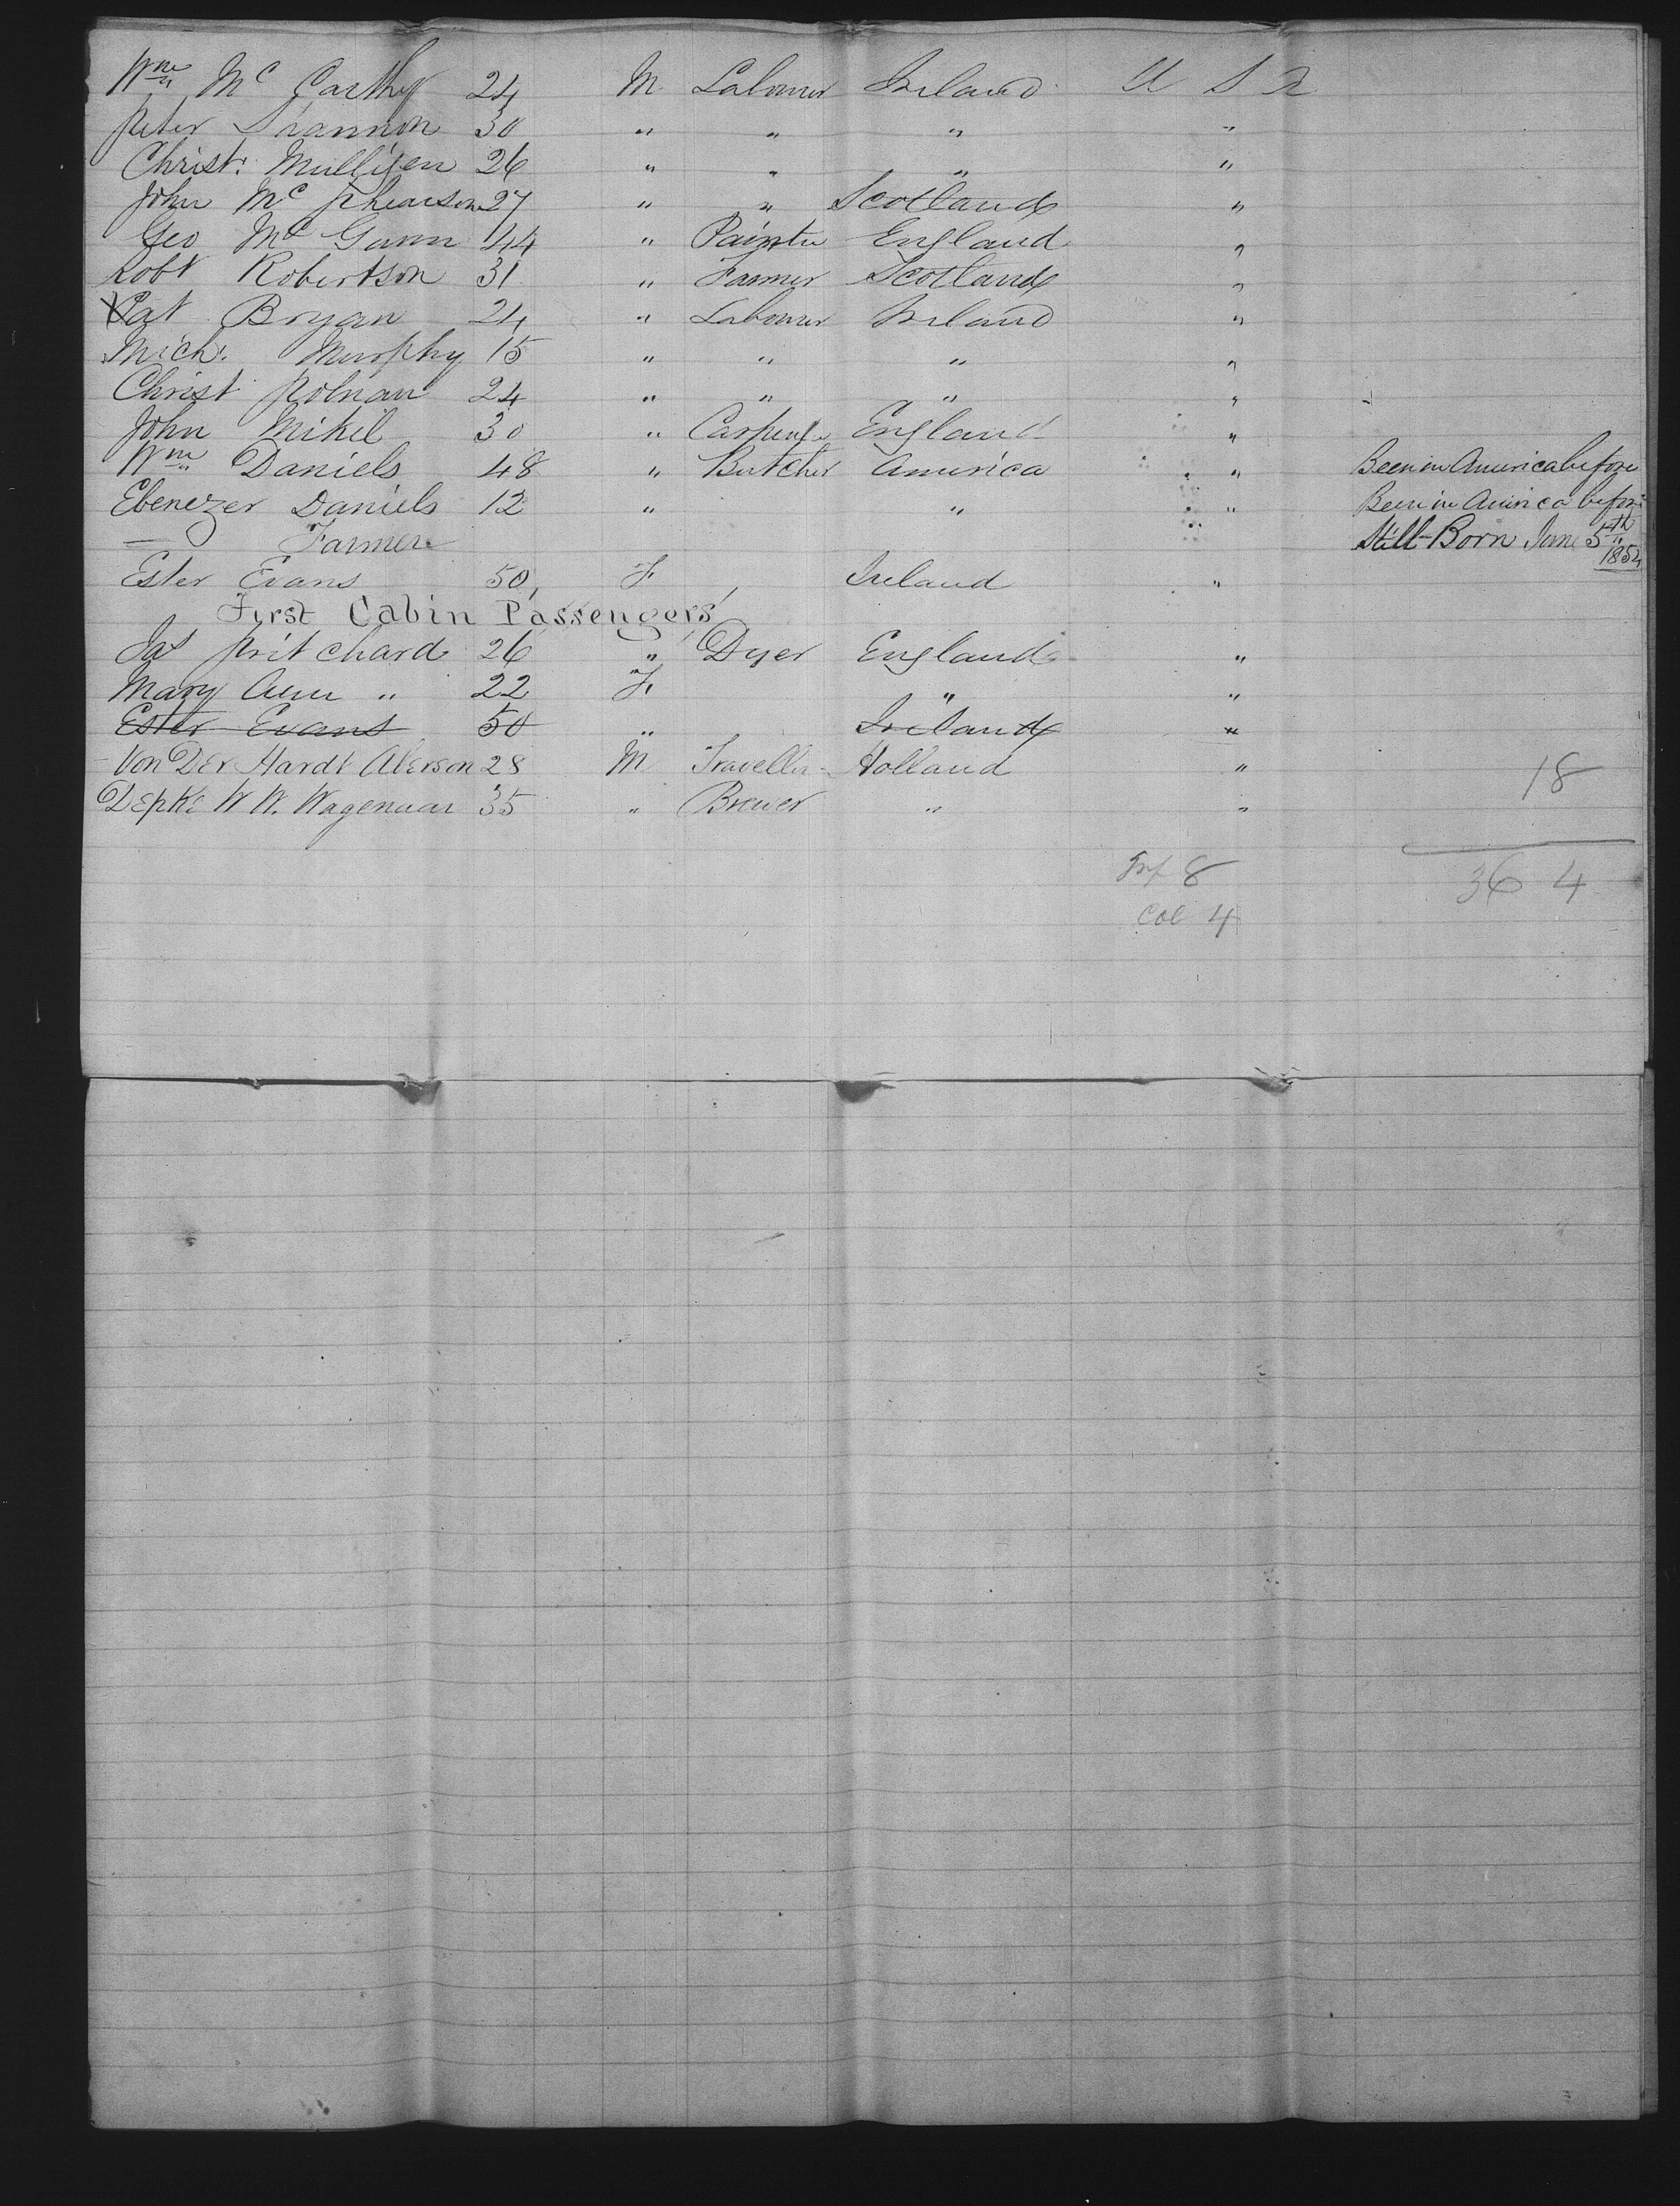 Wm Mc Carthy 24 M Labourer Ireland U S A
Peter Shannon 30 " " " "
Christ: Mulligen 26 " " " "
John Mc Phearson 27 " " Scotland "
Geo Mc Gunn 44 " Painter England "
Robt Robertson 31 " Farmer Scotland "
Pat Bryan 24 " Labourer Ireland "
Mich: Murphy 15 " " " "
Christ 24 " " " "
John Mikel 30 " Carpenter England "
Wm Daniels 48 " Butcher America " Been in America before
Ebenezer Daniels 12 " " " Been in America before
— Farmer Still-Born June 5th 1854
Ester Evans 50 F Ireland "
First Cabin Passengers
Jas Pritchard 26 " Dyer England "
Mary Ann " 22 F " "
Ester Evans 50 " Ireland "
Von Der Hardt Aberson 28 M Traveller Holland "
Depke W W. Wagenaar 35 " Brewer " "
18
Inf 8
36 4
Col 4